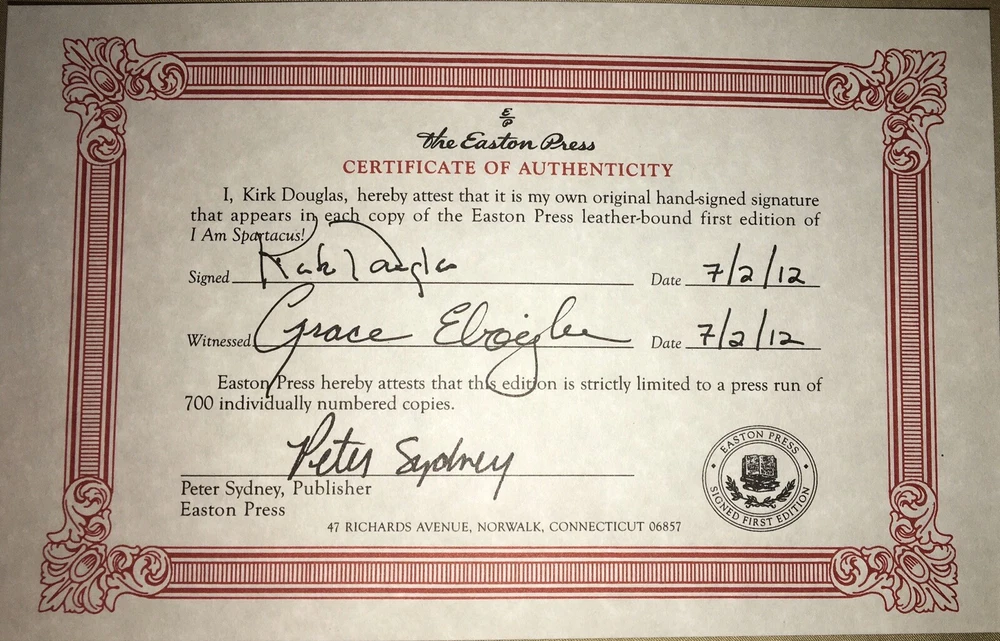 E
P
the Easton Press
CERTIFICATE OF AUTHENTICITY
I, Kirk Douglas, hereby attest that it is my own original hand-signed signature
that appears in each copy of the Easton Press leather-bound first edition of
I Am Spartacus!
Signed Kirk Douglas Date 7/2/12
Witnessed Grace Date 7/2/12
Easton Press hereby attests that this edition is strictly limited to a press run of
700 individually numbered copies.
Peter Sydney
Peter Sydney, Publisher
Easton Press
47 RICHARDS AVENUE, NORWALK, CONNECTICUT 06857
EASTON PRESS
SIGNED FIRST EDITION